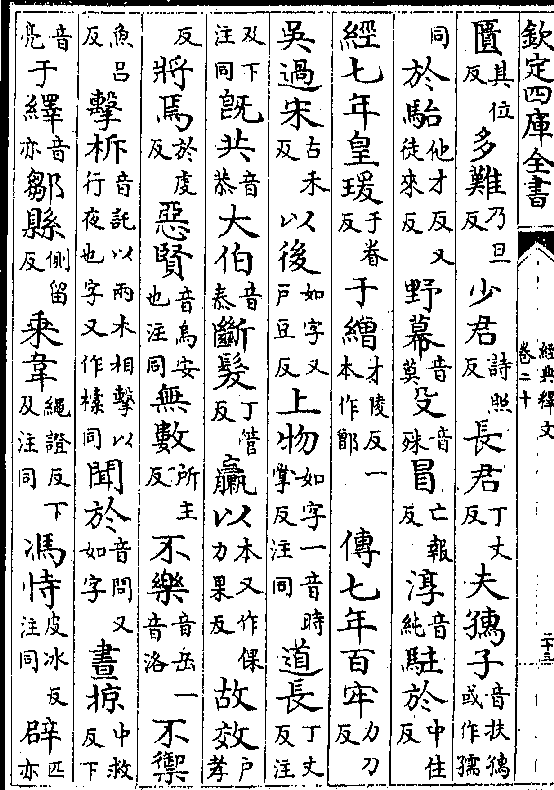 欽定四庫全書 經典釋文 卷二十
匱其位反多難乃旦反少君詩照反長君丁丈反夫獳子音扶獳或作孺
同於駘他才反又徒來反野幕音莫殳音殊冒亡報反淳音純駐於中住反
經七年皇瑗于眷反于繒才陵反一本作鄫傳七年百牢力刀反
吳過宋古禾反以後如字又戸豆反上物如字一音時掌反注同道長丁丈反注
及下注同旣共音恭大伯音泰斷髮丁管反臝以本又作倮力果反故效戸孝
反將焉於虔反惡賢音烏安也注同無數所主反不樂音岳一音洛不禦
魚呂反擊柝音託以兩木相擊以行夜也字又作㯓同聞於音問又如字晝掠中救反下
音亮于繹音亦鄒縣側留反乘韋繩證反下及注同馮恃皮冰反注同辟匹亦